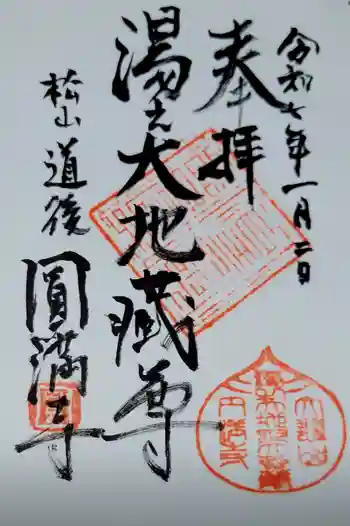 令和七年一月二日
奉拝
湯之大地蔵尊
松山道後
圓満寺